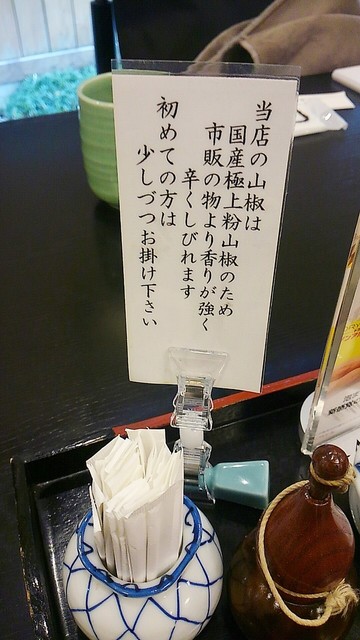 当店の山椒は
国産極上粉山椒のため
市販の物より香りが強く
辛くしびれます
初めての方は
少しづつお掛け下さい